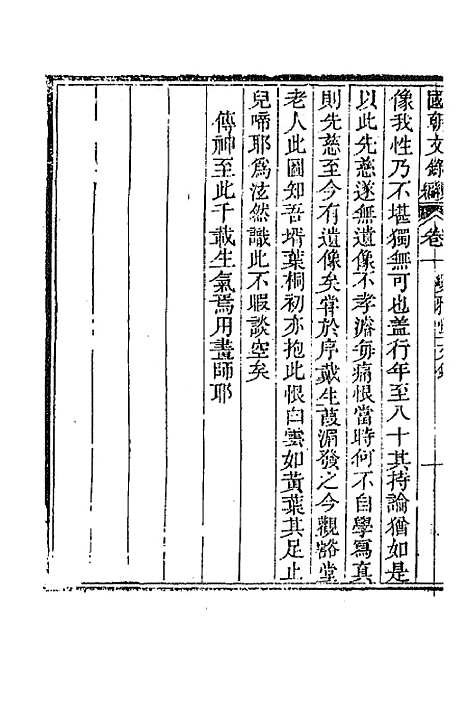 國朝文錄續編 卷十 愛雅堂文錄 一
像我性乃不堪獨無可也蓋行年至八十其持論猶如是
以此先慈遂無遺像不孝濬每痛恨當時何不自學寫真
則先慈至今有遺像矣嘗於序戴生葭湄發之今觀谿堂
老人此圖知吾壻葉桐初亦抱此恨白雲如黃葉其足止
兒啼耶爲泫然識此不暇談空矣
傳神至此千載生氣焉用畫師耶